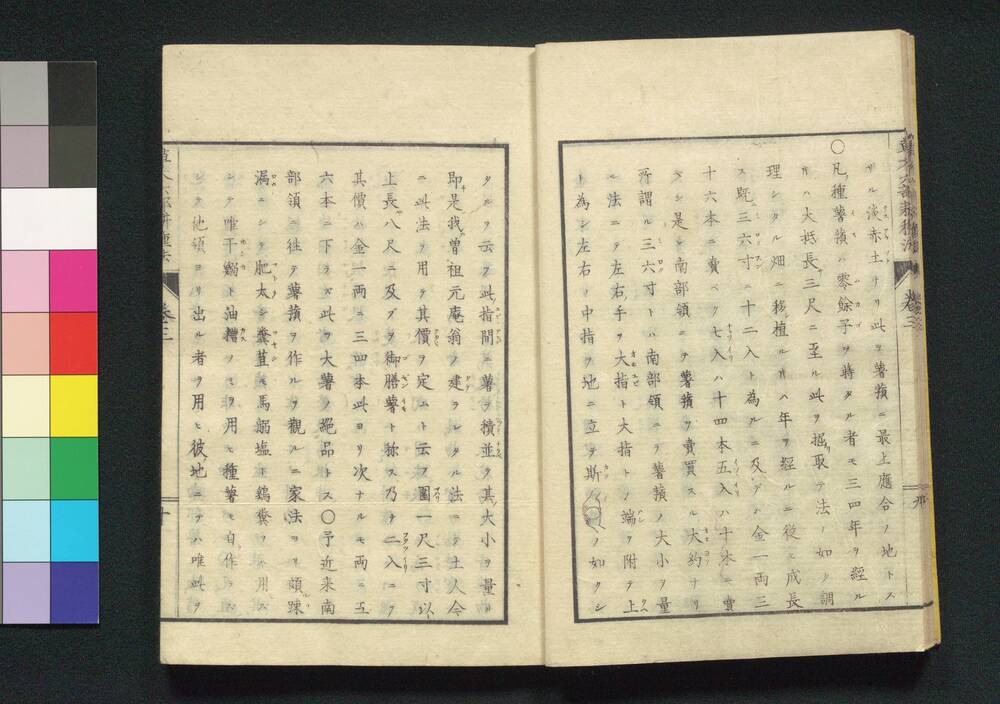 リハ淡赤土ナリ此ヲ薯蕷ニ最上應合ノ地トス
〇凡種薯蕷ハ零餘子ヲ蒔タル者モ三四年ヲ經ル
片ハ大抵長三尺ニ至ル此ヲ掘取テ法ノ如ク調
理シタル畑ニ移植ル片ハ年ヲ經ルニ從ヒ成長
ス既三六寸ニ十二入ト為ルニ及デハ金一両三
十六本ニ賣ベク七入ハ十四本五入ハ十本ニ賣
ベシ是レ南部領ニテ薯蕷ヲ賣買スル大約ナリ
所謂ル三六寸トハ南部領ニテ薯蕷ノ大小ヲ量
ル法ニテ左右手ヲ大指ト大指トノ端ヲ附テ上
ト為シ左右ノ中指ヲ地ニ立ヲ斯ノ如クシ
卷三
九
タルヲ云フ此指間ニ薯ヲ積並ヲ其大小ヲ量ル
即是我曽祖元庵翁ノ建ラレタル法ニテ土人今
ニ此法ヲ用テ其價ヲ定ムト云フ圍一尺三寸以
上長八尺ニ及ブヲ御膳薯ト称ス乃チ二入ニテ
其價ハ金一両ニ三四本此ヨリ次ナルモ両ニ五
六本ニ下ラズ此ヲ大薯ノ絶品トス〇予近来南
部領ニ徃テ薯蕷ヲ作ルヲ觀ルニ家法ヨリ頗踈
漏ニシテ肥太シ糞苴モ馬溺塩ト鷄糞ヲハ用ズ
シテ唯干鰯ト油糟ノミヲ用ヒ種薯モ自作ラズ
シテ他領ヨリ出ル者ヲ用ヒ彼地ニテハ唯此ヲ
卷三
十